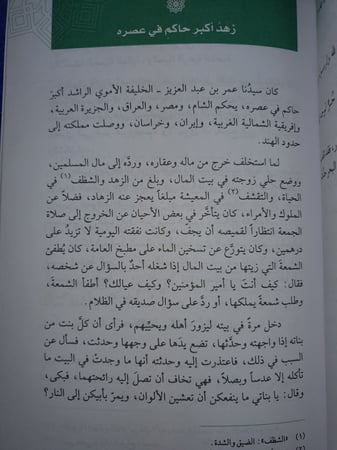 زهد أكبر حاكم في عصره
كان سيدُنا عمر بن عبد العزيز - الخليفة الأموي الراشد أكبرَ
حاكم في عصره، يحكم الشام، ومصر، والعراق، والجزيرة العربية،
وإفريقية الشمالية الغربية، وإيران، وخراسان، ووصلت مملكته إلى
حدود الهند.
لما استخلف خرج من ماله وعقاره، وردَّه إلى مال المسلمين،
ووضع حلي زوجته في بيت المال، وبلغ من الزهد والشظف (١) في
الحياة، والتقشف (٢) في المعيشة مبلغاً يعجز عنه الزهاد، فضلاً عن
الملوك والأمراء، كان يتأخَّر في بعض الأحيان عن الخروج إلى صلاة
الجمعة انتظاراً لقميصه أن يجفَّ، وكانت نفقته اليومية لا تزيدُ على
درهمين، وكان يتورَّع عن تسخين الماء على مطبخ العامة، كان يُطفئ
الشمعةَ التي زيتها من بيت المال إذا شغله أحدٌ بالسؤال عن شخصه،
فقال: كيف أنتَ يا أمير المؤمنين؟ وكيف عيالك؟ أطفأ الشمعةَ،
وطلب شمعةً يملكها، أو ردَّ على سؤال صديقه في الظلام.
دخل مرةً في بيته ليزورَ أهله ويحيِّيهم، فرأى أن كلَّ بنت من
بناته إذا واجهته وحدَّثها، تضع يدَها على وجهها وحدثت، فسأل عن
السبب في ذلك، فاعتذرت إليه وحدثته أنها ما وجدتْ في البيت ما
تأكله إلا عدساً وبصلاً، فهي تخاف أن تصلَ إليه رائحتهما، فبكى،
وقال: يا بناتي ما ينفعكن أن تعشين الألوان، ويمرّ بأبيكن إلى النار؟
(١) «الشظف»: الضيق والشدة.